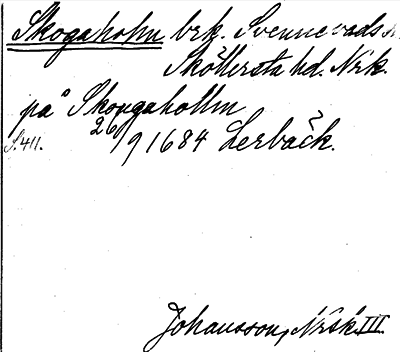 Skogaholm brk. Svennevads s.
Sköllersta hd. Nrk.
på Skougahollm
S. 411. 26/9 1684 Lerbäck.
Johansson, Nrsk. III